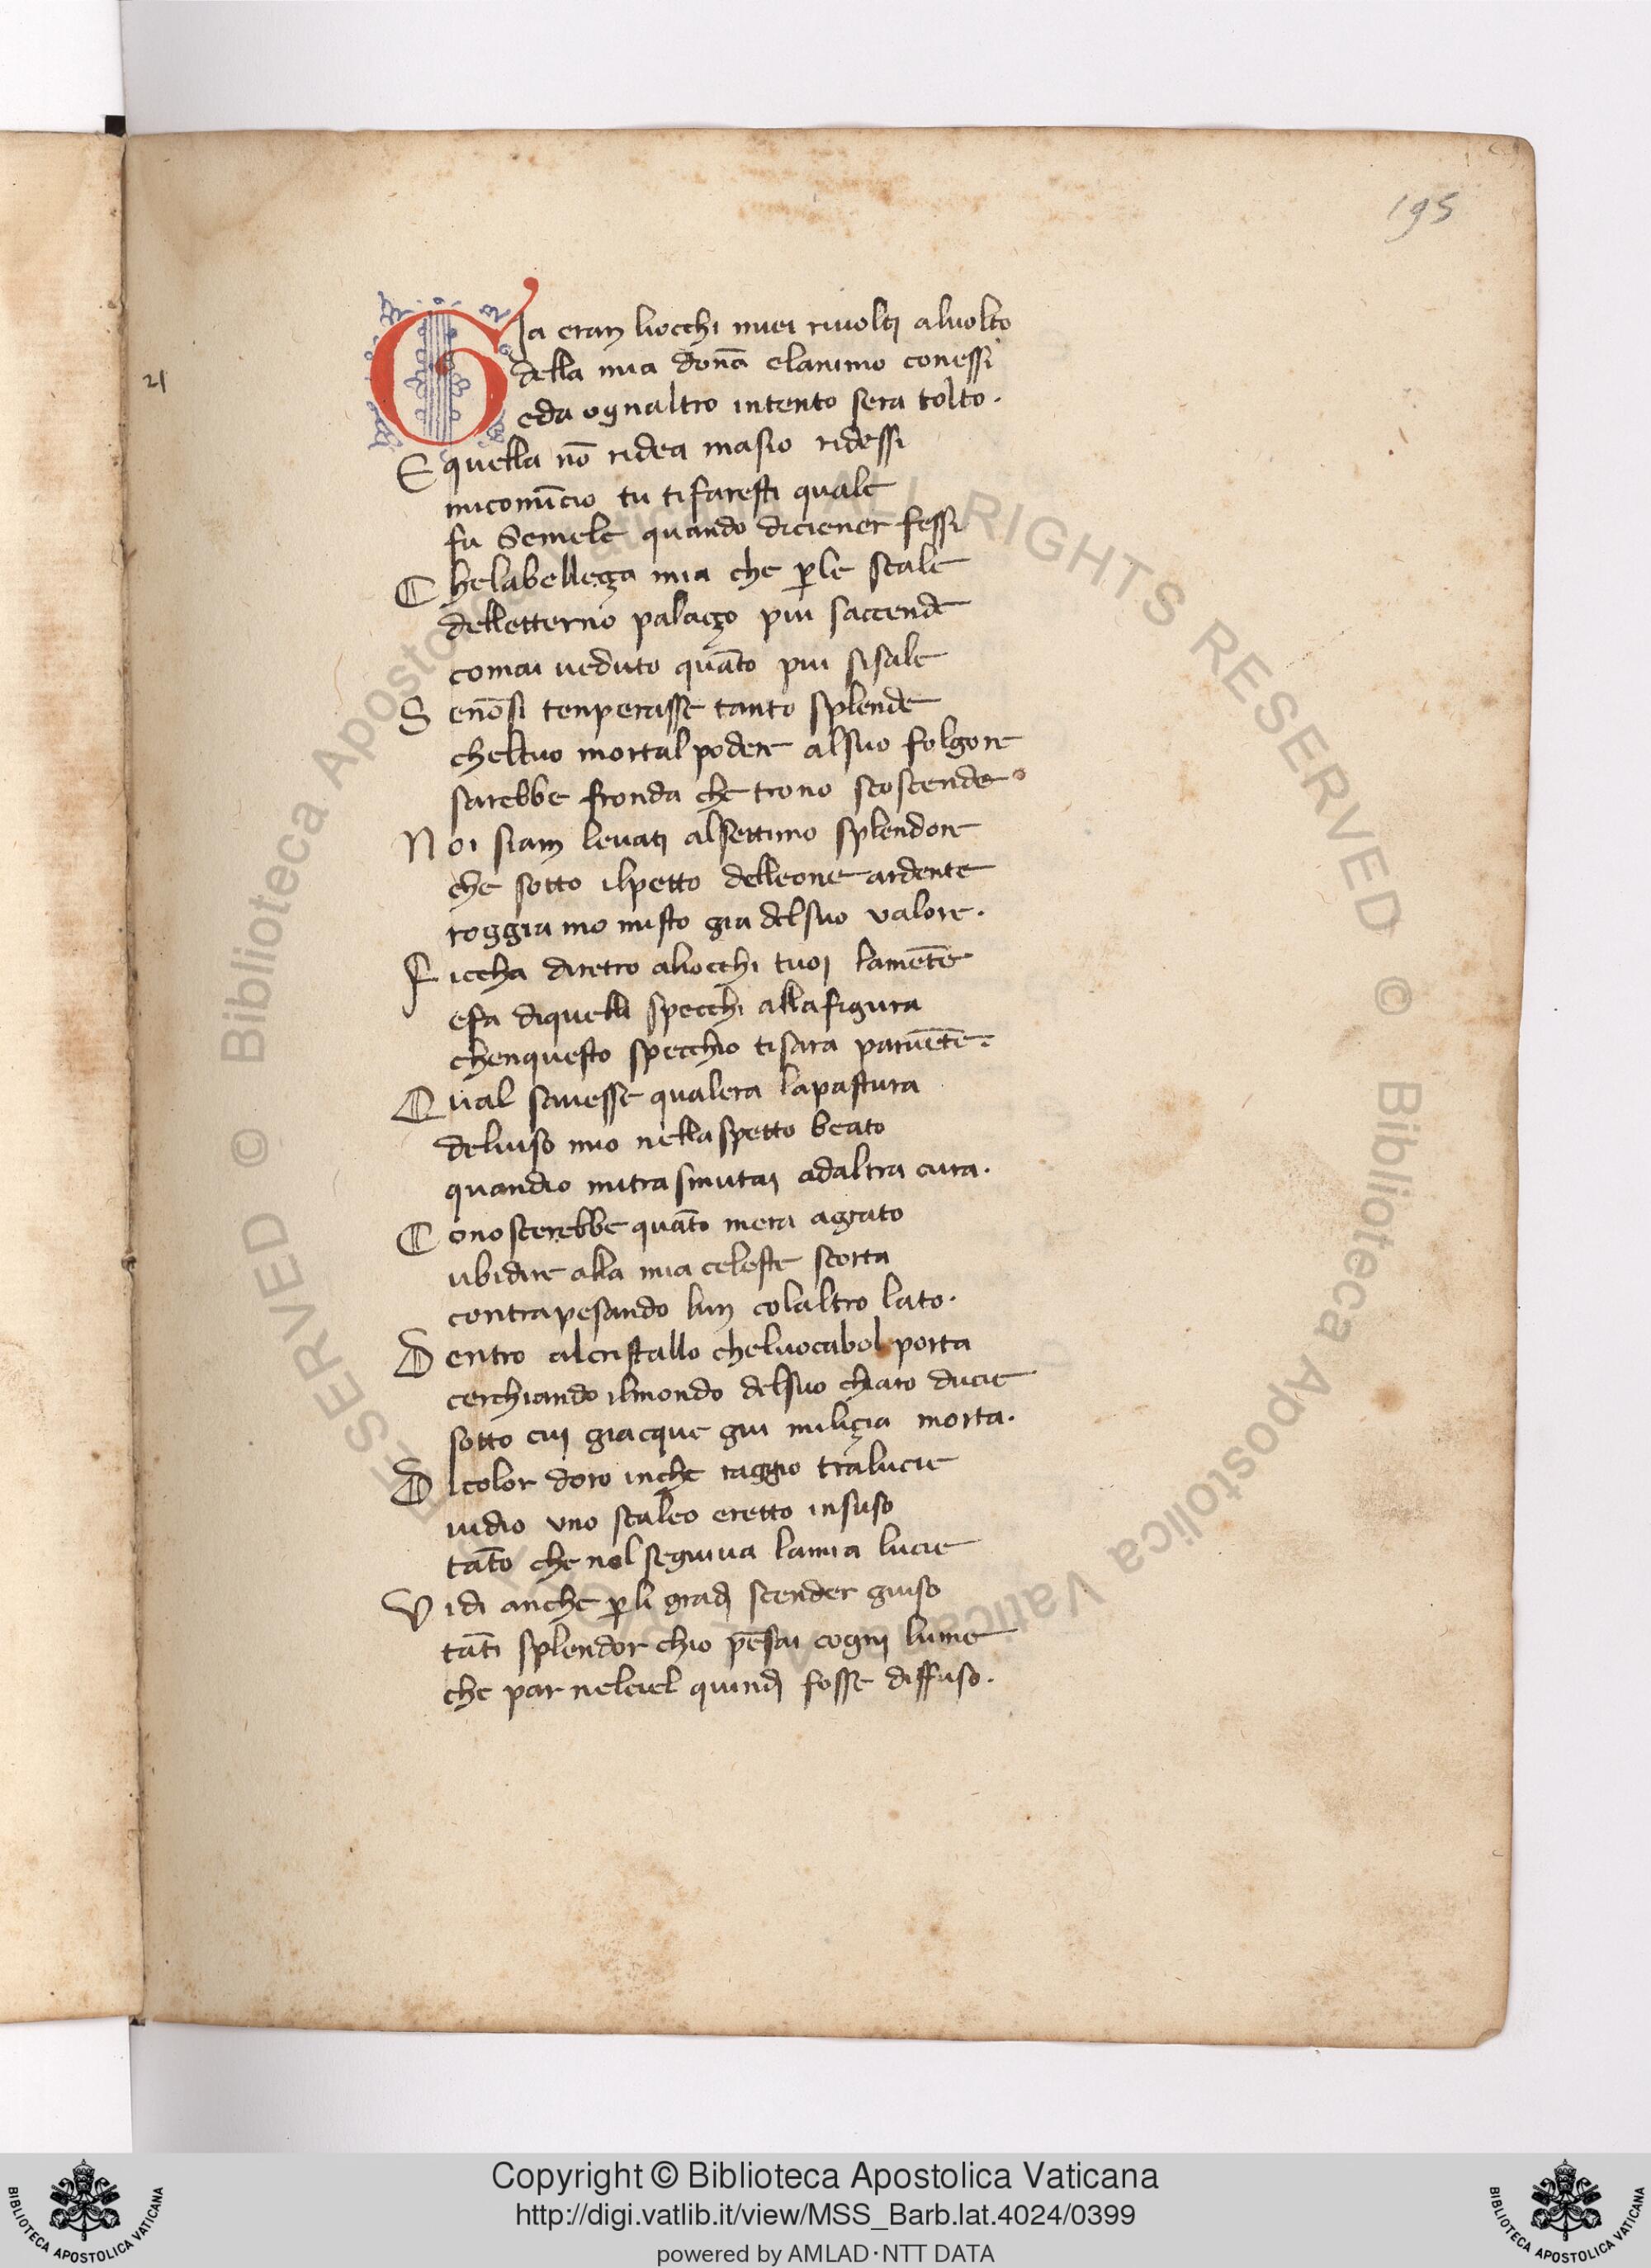 195
21
Gia eran liocchi miei riuolti aluolto
della mia donā elanimo conessi
eda ognaltro intento sera tolto.
E quella nō ridea masio ridessi
micomīcio tu tifaresti quale
fu Semele quando diciener fessi
C helabelleçça mia che ꝑle scale
delletterno palaçço piu saccende
comai ueduto quāto piu sisale
S enōsi tenperasse tanto splende
cheltuo mortal podere alsuo folgore
sarebbe fronda che trono scoscende
N oi siam leuati alsettimo splendore
che sotto ilpetto delleone ardente
roggia mo misto gia delsuo valore.
F iccha diretro aliocchi tuoi lamēte
efa diquelli specchi allafigura
chenquesto specchio tisara paruēte.
Q ual sauesse qualera lapastura
deluiso mio nellaspetto beato
quandio mitrasmutai adaltra cura.
C onoscerebbe quāto mera agrato
ubidire alla mia celeste scorta
contrapesando lun colaltro lato.
D entro alcristallo cheluocabol porta
cerchiando ilmondo delsuo chiaro ducie
sotto cui giacque gni miliçia morta.
D icolor doro inche raggio tralucie
uidio vno scaleo eretto insuso
tāto che nol seguiua lamia lucie
V idi anche ꝑli gradi scender giuso
tāti splendor chio pēsai cogni lume
che par nelciel quindi fosse diffuso.
© Biblioteca Apostolica Vaticana ALL RIGHTS RESERVED
Copyright © Biblioteca Apostolica Vaticana
http://digi.vatlib.it/view/MSS_Barb.lat.4024/0399
powered by AMLAD·NTT DATA
BIBLIOTECA APOSTOLICA VATICANA
BIBLIOTECA APOSTOLICA VATICANA